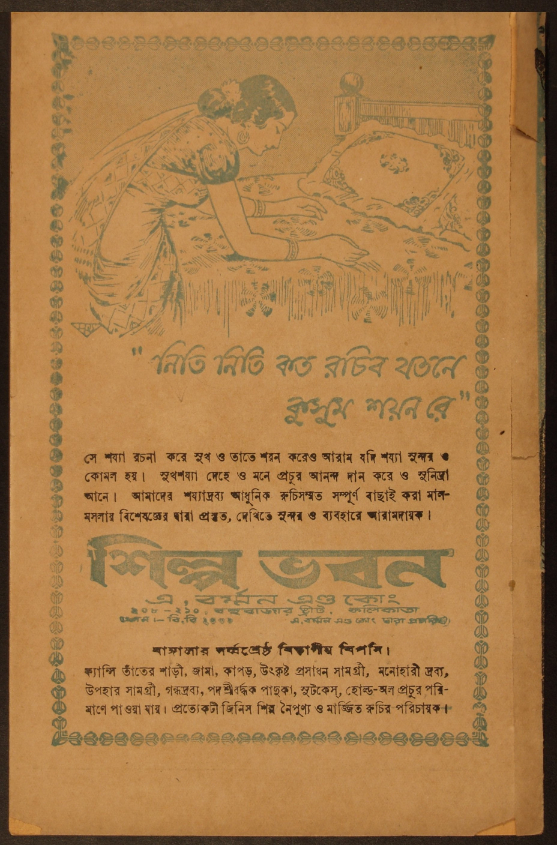 "নিতি নিতি কত রচিব যতনে
কুসুম শয়ন রে"
সে শয্যা রচনা করে সুখ ও তাতে শয়ন করেও আরাম যদি শয্যা সুন্দর ও
কোমল হয়। সুখশয্যা দেহে ও মনে প্রচুর আনন্দ দান করে ও সুনিদ্রা
আনে। আমাদের শয্যাদ্রব্য আধুনিক রুচিসম্মত সম্পূর্ণ বাছাই করা মাল-
মসলার বিশেষজ্ঞের দ্বারা প্রস্তুত, দেখিতে সুন্দর ও ব্যবহারে আরামদায়ক।
শিল্প ভবন
এ, বর্ম্মন এণ্ড কোং
২০৮-২১০, বহুবাজার ষ্ট্রীট, কলিকাতা
ফোন :- বি, বি এ, বর্ম্মন এণ্ড কোং দ্বারা
বাঙ্গালার সর্ব্বশ্রেষ্ঠ বিভাগীয় বিপনি।
ফ্যান্সি তাঁতের শাড়ী, জামা, কাপড়, উৎকৃষ্ট প্রসাধন সামগ্রী, মনোহারী দ্রব্য,
উপহার সামগ্রী, গন্ধদ্রব্য, পদশ্রীবর্দ্ধক পাদুকা, সুটকেস্, হোল্ড-অল প্রচুর পরি-
মাণে পাওয়া যায়। প্রত্যেকটী জিনিস শিল্প নৈপুণ্য ও মার্জ্জিত রুচির পরিচায়ক।